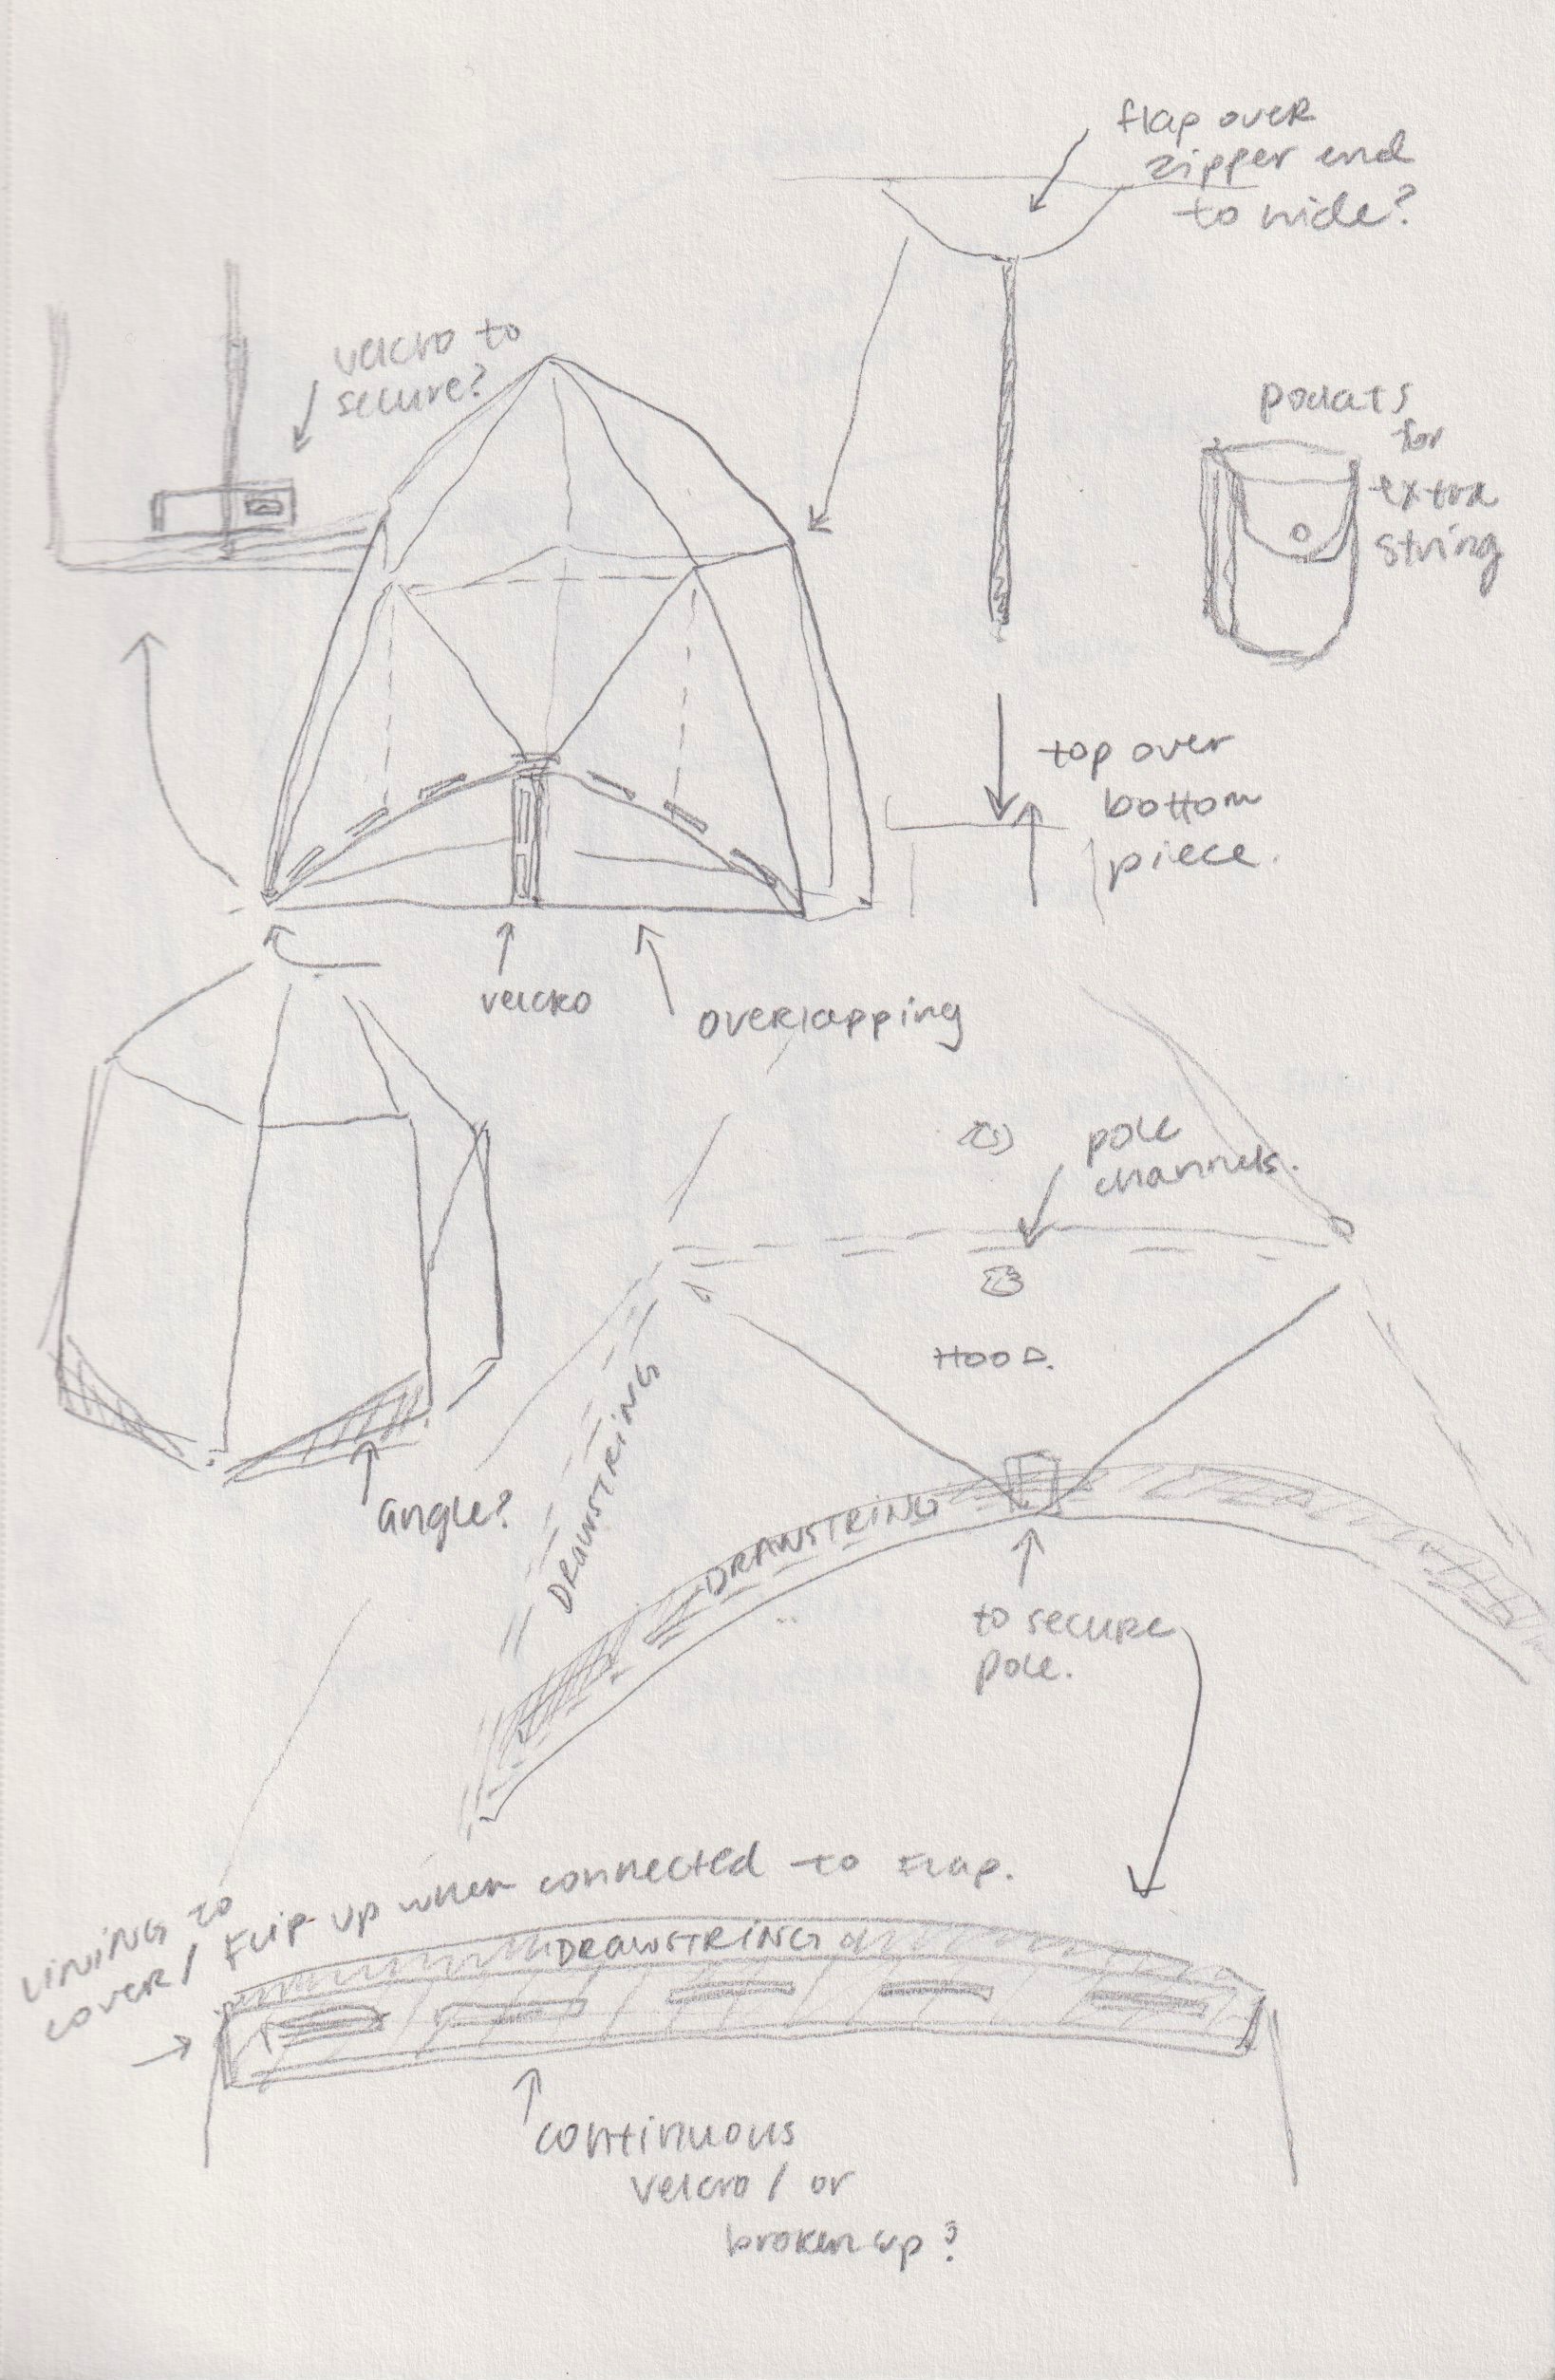 flap over
zipper end
to hide?
velcro to
secure?
pockets
for
extra
string
top over
bottom
piece.
velcro
overlapping
pole
channels.
HOOD.
angle?
DRAWSTRING
DRAWSTRING
to secure
pole.
LINING to
cover / Flip up when connected to Flap.
DRAWSTRING
continuous
velcro / or
broken up?